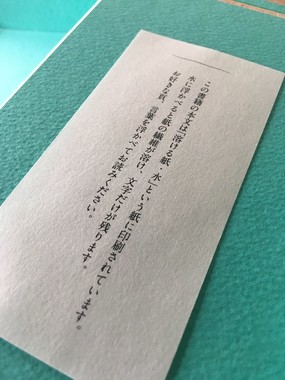 この書籍の本文は「溶ける紙・水」という紙に印刷されています。
水に浮かべると紙の繊維が溶け、文字だけが残ります。
お好きな頁、言葉を浮かべてお読みください。